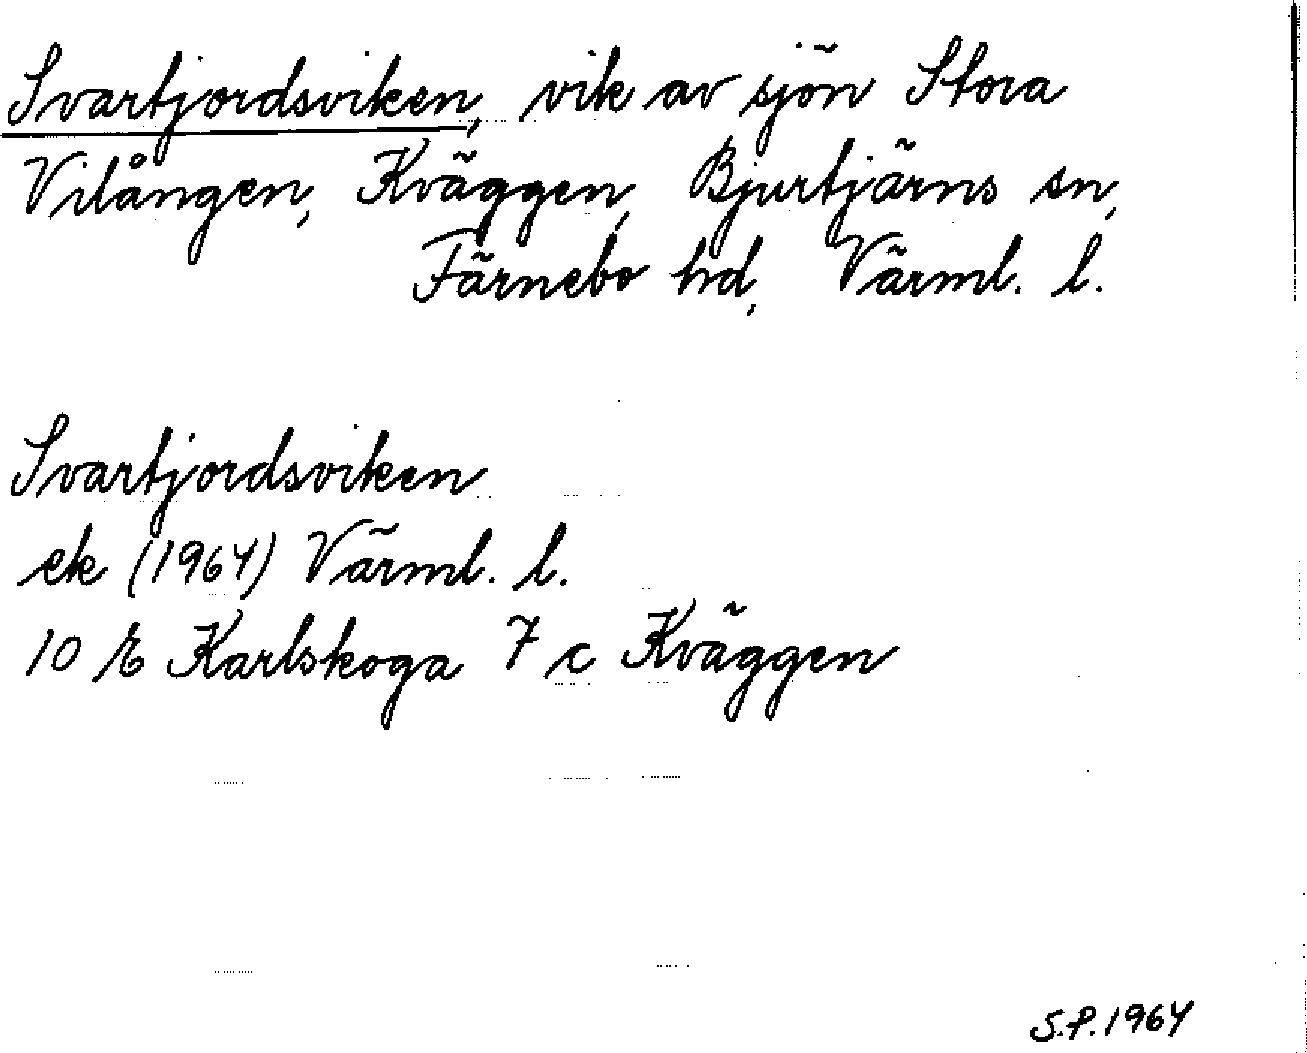 Svartjordsviken, vik av sjön Stora
Vilången, Kväggen, Bjurtjärns sn,
Färnebo hd, Värml. l.
Svartjordsviken
ek (1964) Värml. l.
10 E Karlskoga 7 c Kväggen
S.P. 1964